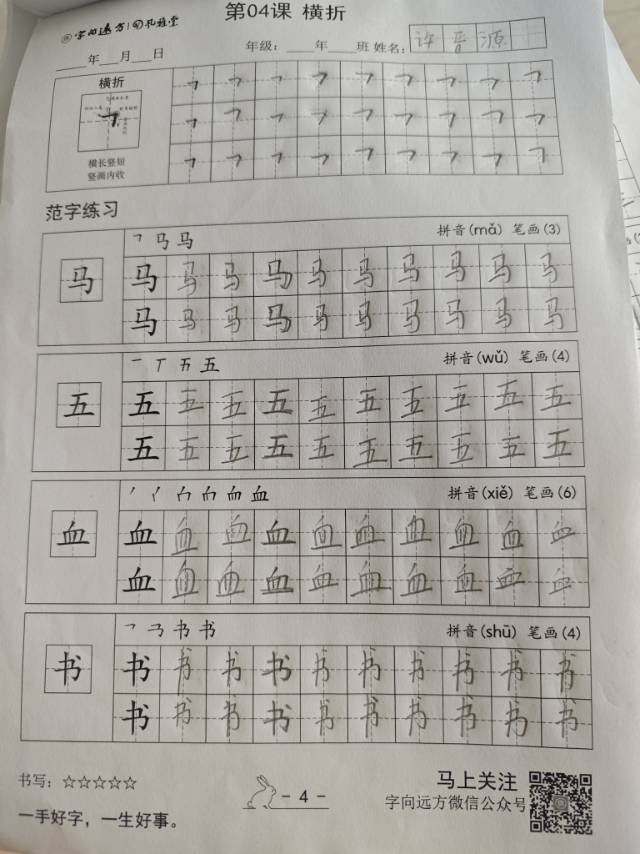 第04课 横折
字向远方 | 孔雅堂
年 月 日 年级: 年 班 姓名: 许晋源
横折
横长竖短
竖画内收
范字练习
拼音(mǎ) 笔画(3)
马 马 马 马 马 马 马 马 马 马 马
马 马 马 马 马 马 马 马 马 马
拼音(wǔ) 笔画(4)
五 五 五 五 五 五 五 五 五 五 五
五 五 五 五 五 五 五 五 五 五
拼音(xiě) 笔画(6)
血 血 血 血 血 血 血 血 血 血 血
血 血 血 血 血 血 血 血 血 血
拼音(shū) 笔画(4)
书 书 书 书 书 书 书 书 书 书 书
书 书 书 书 书 书 书 书 书 书
书写: ☆☆☆☆☆
一手好字，一生好事。
- 4 -
马上关注
字向远方微信公众号